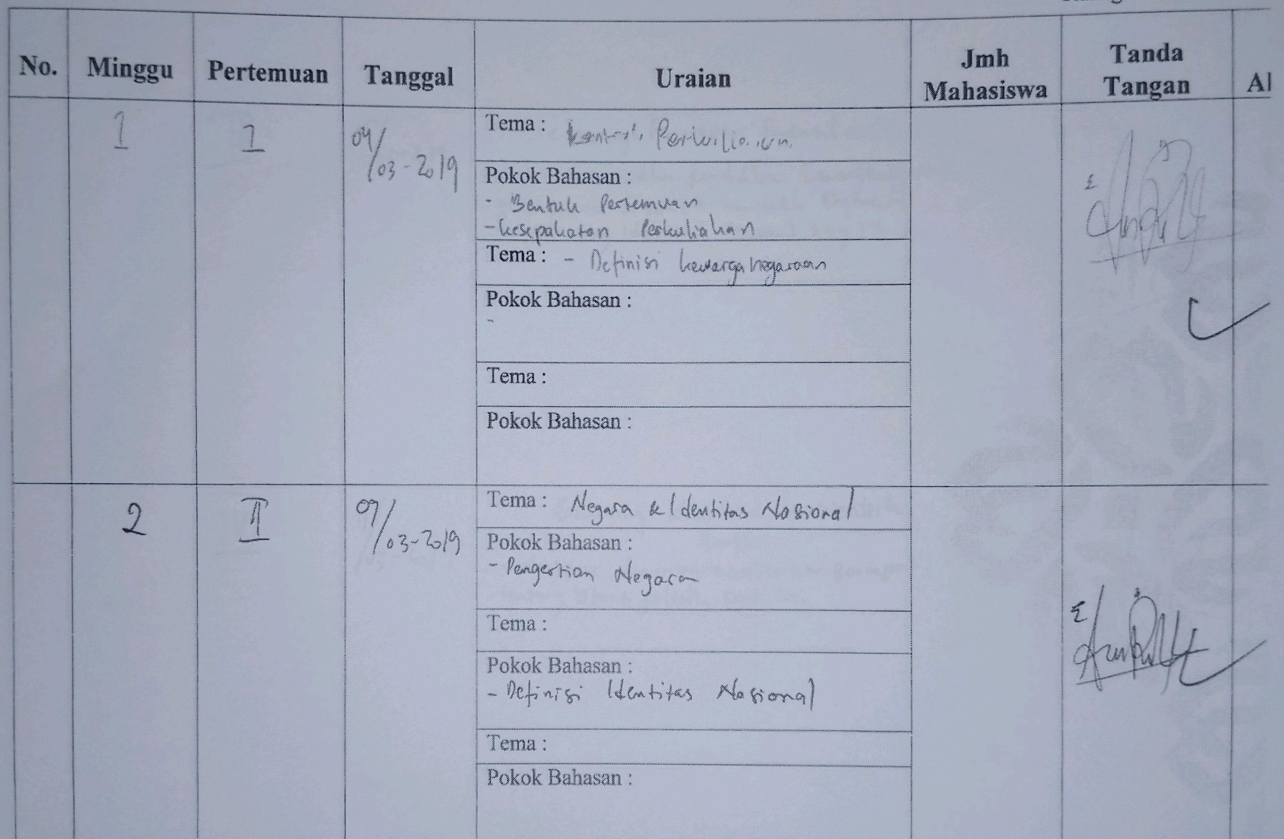 No. Minggu Pertemuan Tanggal Uraian Jmh Mahasiswa Tanda Tangan
1 I 04/03-2019 Tema : Kontrak Perkuliahan
Pokok Bahasan :
- Bentuk Pertemuan
- Kesepakatan Perkuliahan
Tema : - Definisi kewarganegaraan
Pokok Bahasan :
-
Tema :
Pokok Bahasan :
2 II 09/03-2019 Tema : Negara & Identitas Nasional
Pokok Bahasan :
- Pengertian Negara
Tema :
Pokok Bahasan :
- Definisi Identitas Nasional
Tema :
Pokok Bahasan :